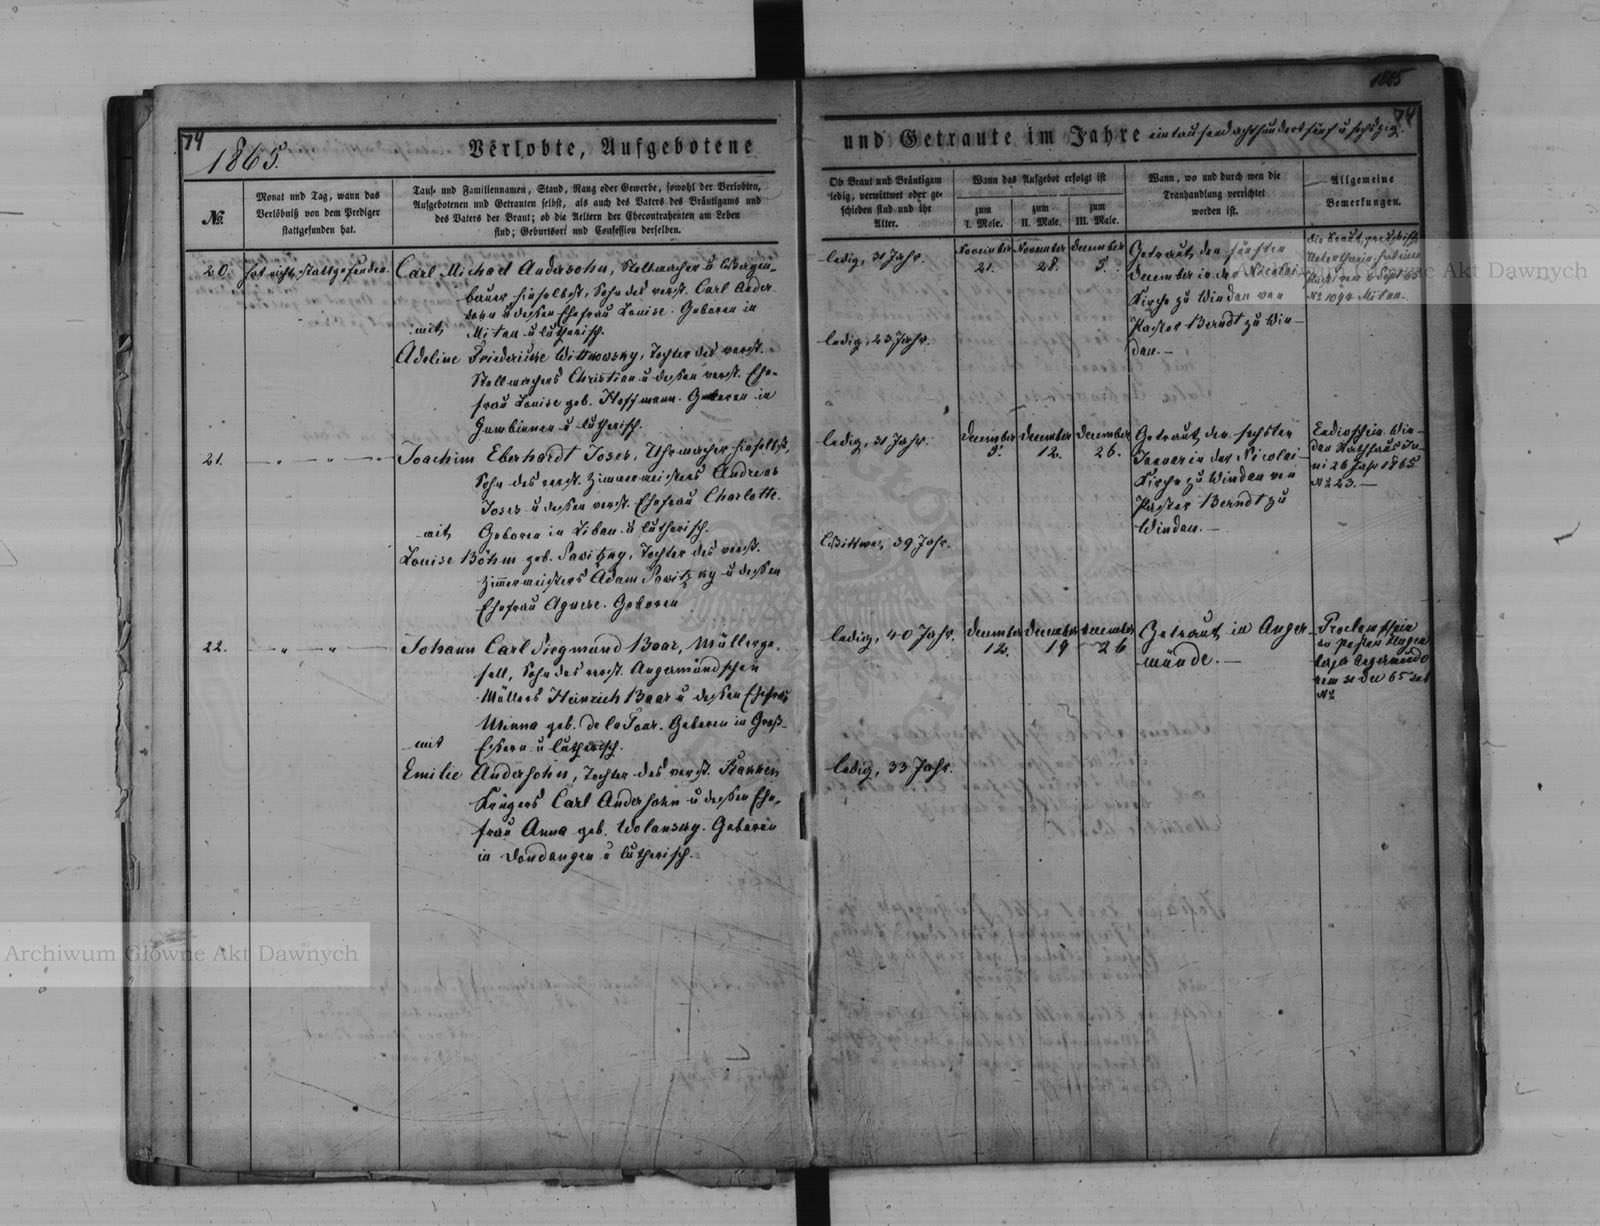 1865
74
74
1865.
Verlobte, Aufgebotene
und Getraute im Jahre eintausendachthundert fünf u sechszig.
№.
Monat und Tag, wann das
Verlöbniß von dem Prediger
stattgefunden hat.
Tauf- und Familiennamen, Stand, Rang oder Gewerbe, sowohl der Verlobten,
Aufgebotenen und Getrauten selbst, als auch des Vaters des Bräutigams und
des Vaters der Braut; ob die Aeltern der Ehecontrahenten am Leben
sind; Geburtsort und Confession derselben.
Ob Braut und Bräutigam
ledig, verwittwet oder ge-
schieden sind und ihr
Alter.
Wann das Aufgebot erfolgt ist
zum
I. Male.
zum
II. Male.
zum
III. Male.
Wann, wo und durch wen die
Trauhandlung verrichtet
worden ist.
Allgemeine
Bemerkungen.
20.
hat nicht stattgefunden.
Carl Michael Andersohn, Stellmacher u Wagen-
bauer hieselbst, Sohn des verst. Carl Ander
sohn u dessen Ehefrau Louise. Geboren in
mit
Mitau u lutherisch.
Adeline Friedericke Wittkowsky, Tochter des verst.
Stellmachers Christian u dessen verst. Ehe-
frau Louise geb. Hoffmann. Geboren in
Gumbinnen u lutherisch.
ledig, 31 Jahr.
ledig, 23 Jahr.
November
21.
November
28.
December
5.
Getraut den fünften
December in der Nicolai
Kirche zu Windau von
Pastor Berndt zu Win-
dau.—
№ 1094 Mitau.
21.
— „ — „ — „ —
Joachim Eberhardt Joses, Uhrmacher hieselbst,
Sohn des verst. Zimmermeisters Andreas
Joses u dessen verst. Ehefrau Charlotte.
mit
Geboren in Libau u lutherisch.
Louise Böhm geb. Sawitzky, Tochter des verst.
Zimmermeisters Adam Sawitzky u dessen
Ehefrau Agnese. Geboren
ledig, 31 Jahr.
Wittwe, 39 Jahr.
December
5.
December
12.
December
26.
Getraut den sechsten
Januar in der Nicolai-
Kirche zu Windau von
Pastor Berndt zu
Windau.—
Win-
dau
26 1865
№ 23.—
22.
— „ — „ — „ —
Johann Carl Siegmund Baar, Müllerge-
sell, Sohn des verst. Angermündschen
Müllers Heinrich Baar u dessen Ehefrau
Minna geb. de la Paar. Geboren in Groß-
mit
Essern u lutherisch.
Emilie Andersohn, Tochter des verst.
Krügers Carl Andersohn u dessen Ehe-
frau Anna geb. Wolansky. Geboren
in Dondangen u lutherisch.
ledig, 40 Jahr.
ledig, 33 Jahr.
December
12.
December
19
December
26
Getraut in Anger-
münde.—
65
№
Archiwum Główne Akt Dawnych
Archiwum Główne Akt Dawnych